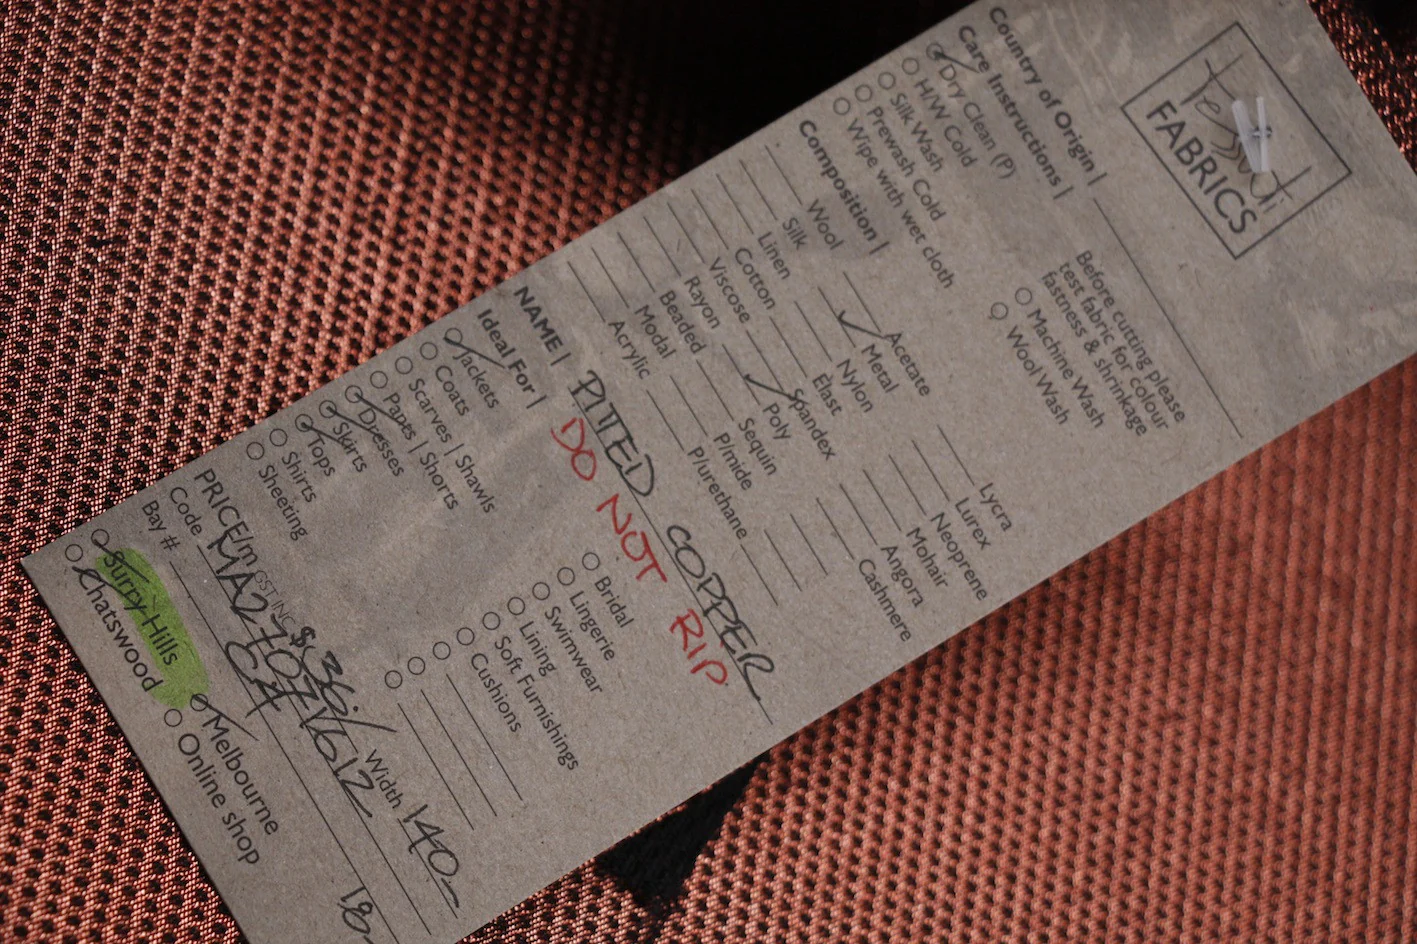 Tessuti
FABRICS
Country of Origin |
Care Instructions |
Dry Clean (P)
H/W Cold
Silk Wash
Prewash Cold
Wipe with wet cloth
Before cutting please
test fabric for colour
fastness & shrinkage
Machine Wash
Wool Wash
Composition |
Wool
Silk
Linen
Cotton
Viscose
Rayon
Beaded
Modal
Acrylic
Acetate
Metal
Nylon
Elast
Spandex
Poly
Sequin
P/mide
P/urethane
Lycra
Lurex
Neoprene
Mohair
Angora
Cashmere
NAME | PITTED COPPER
DO NOT RIP
Ideal For |
Jackets
Coats
Scarves | Shawls
Pants | Shorts
Dresses
Skirts
Tops
Shirts
Sheeting
Bridal
Lingerie
Swimwear
Lining
Soft Furnishings
Cushions
PRICE/m GST INC $ 36./ Width 140-
Code
Bay #
Surry Hills
Chatswood
Melbourne
Online shop